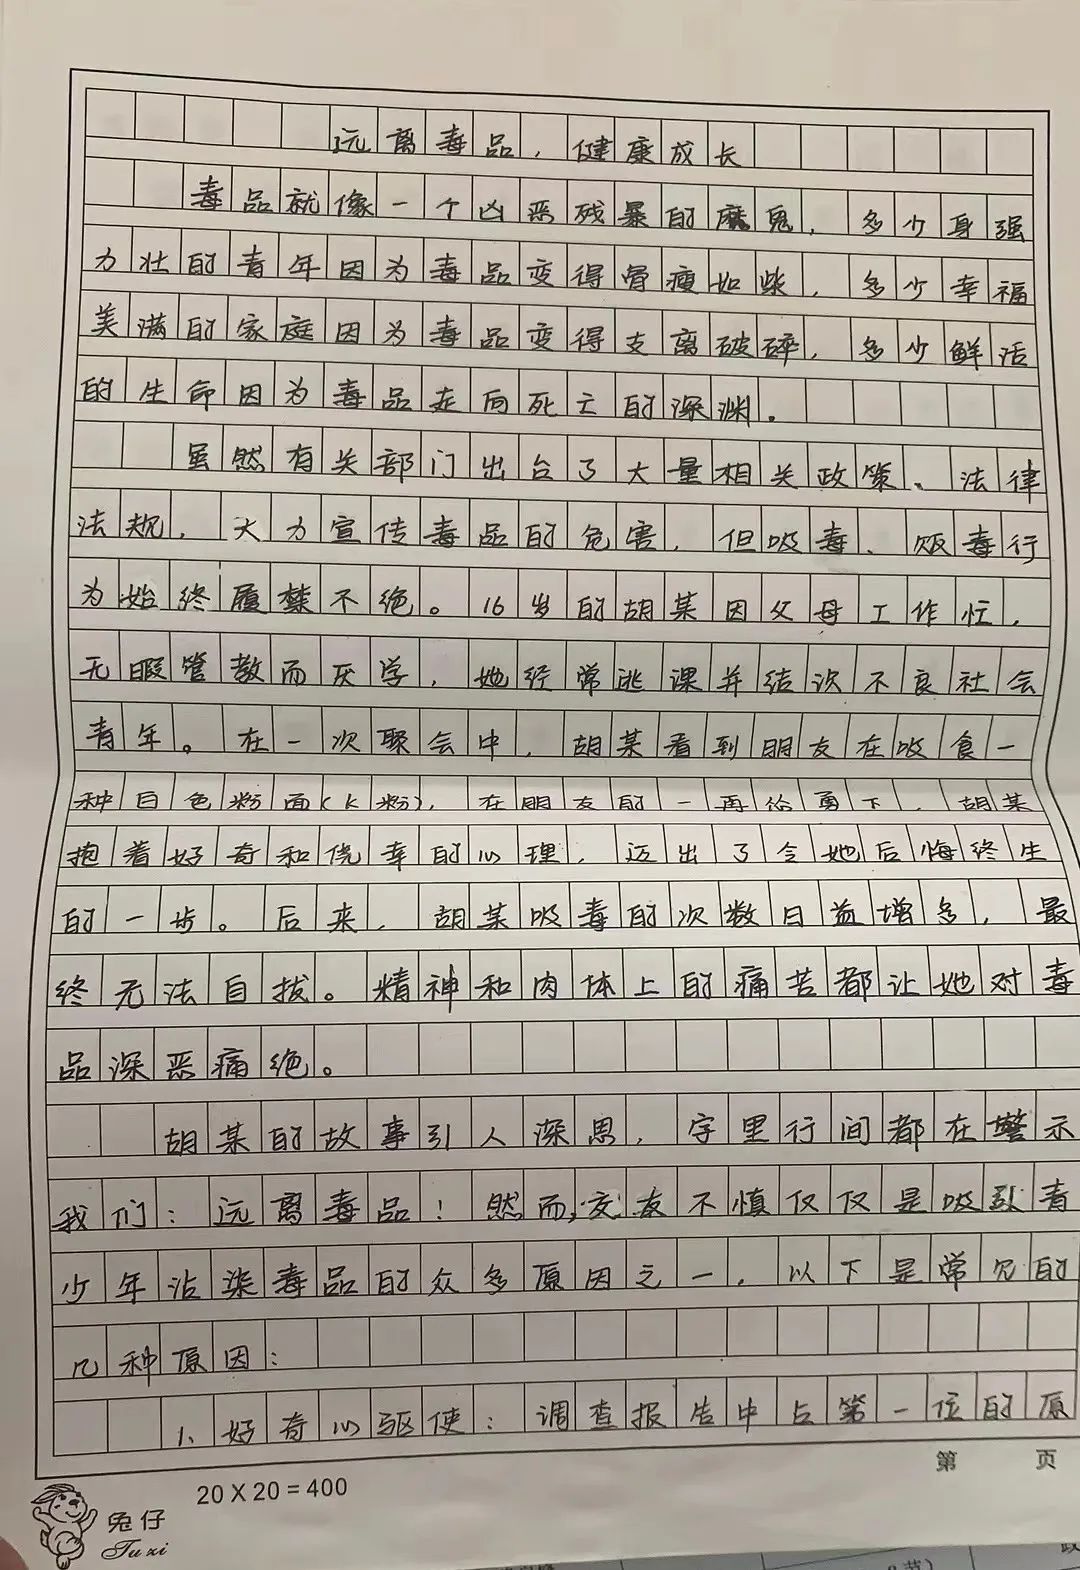 远离毒品，健康成长
毒品就像一个凶恶残暴的魔鬼，多少身强
力壮的青年因为毒品变得骨瘦如柴，多少幸福
美满的家庭因为毒品变得支离破碎，多少鲜活
的生命因为毒品走向死亡的深渊。
虽然有关部门出台了大量相关政策、法律
法规，大力宣传毒品的危害，但吸毒、贩毒行
为始终履禁不绝。16岁的胡某因父母工作忙，
无暇管教而厌学，她经常逃课并结次不良社会
青年。在一次聚会中，胡某看到朋友在吸食一
种白色粉面（K粉），在朋友的一再怂勇下，胡某
抱着好奇和侥幸的心理，迈出了令她后悔终生
的一步。后来，胡某吸毒的次数日益增多，最
终无法自拔。精神和肉体上的痛苦都让她对毒
品深恶痛绝。
胡某的故事引人深思，字里行间都在警示
我们：远离毒品！然而，交友不慎仅仅是吸引青
少年沾染毒品的众多原因之一，以下是常见的
几种原因：
1、好奇心驱使：调查报告中占第一位的原
第 页
20×20=400
兔仔
Tuzi